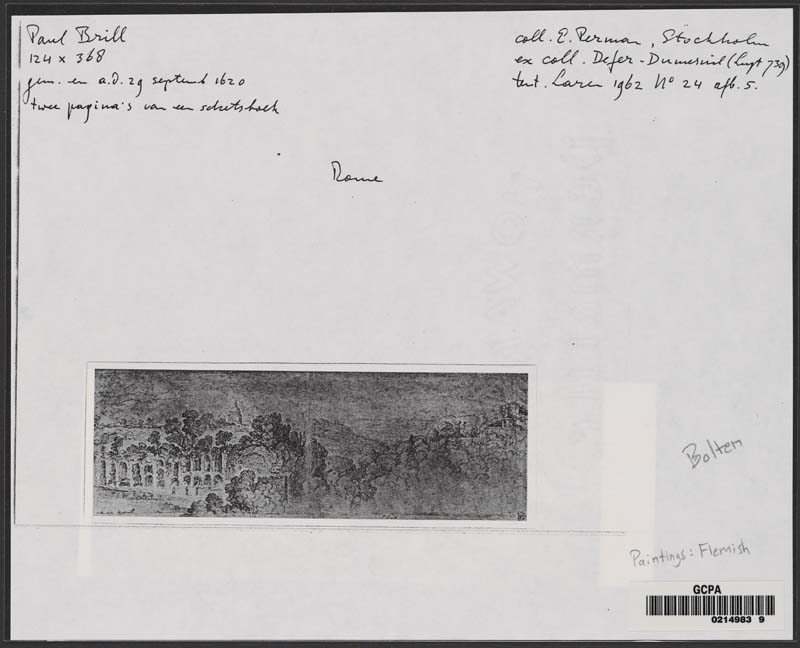 Paul Brill
124 x 368
gem. en a.d. 29 septemb 1620
twee pagina's van een schetsboek
coll. E. Perman, Stockholm
ex coll. Defer-Dumesnil (Lugt 739)
tent. Laren 1962 No 24 afb. 5.
Rome
Bolten
Paintings: Flemish
GCPA
0214983 9